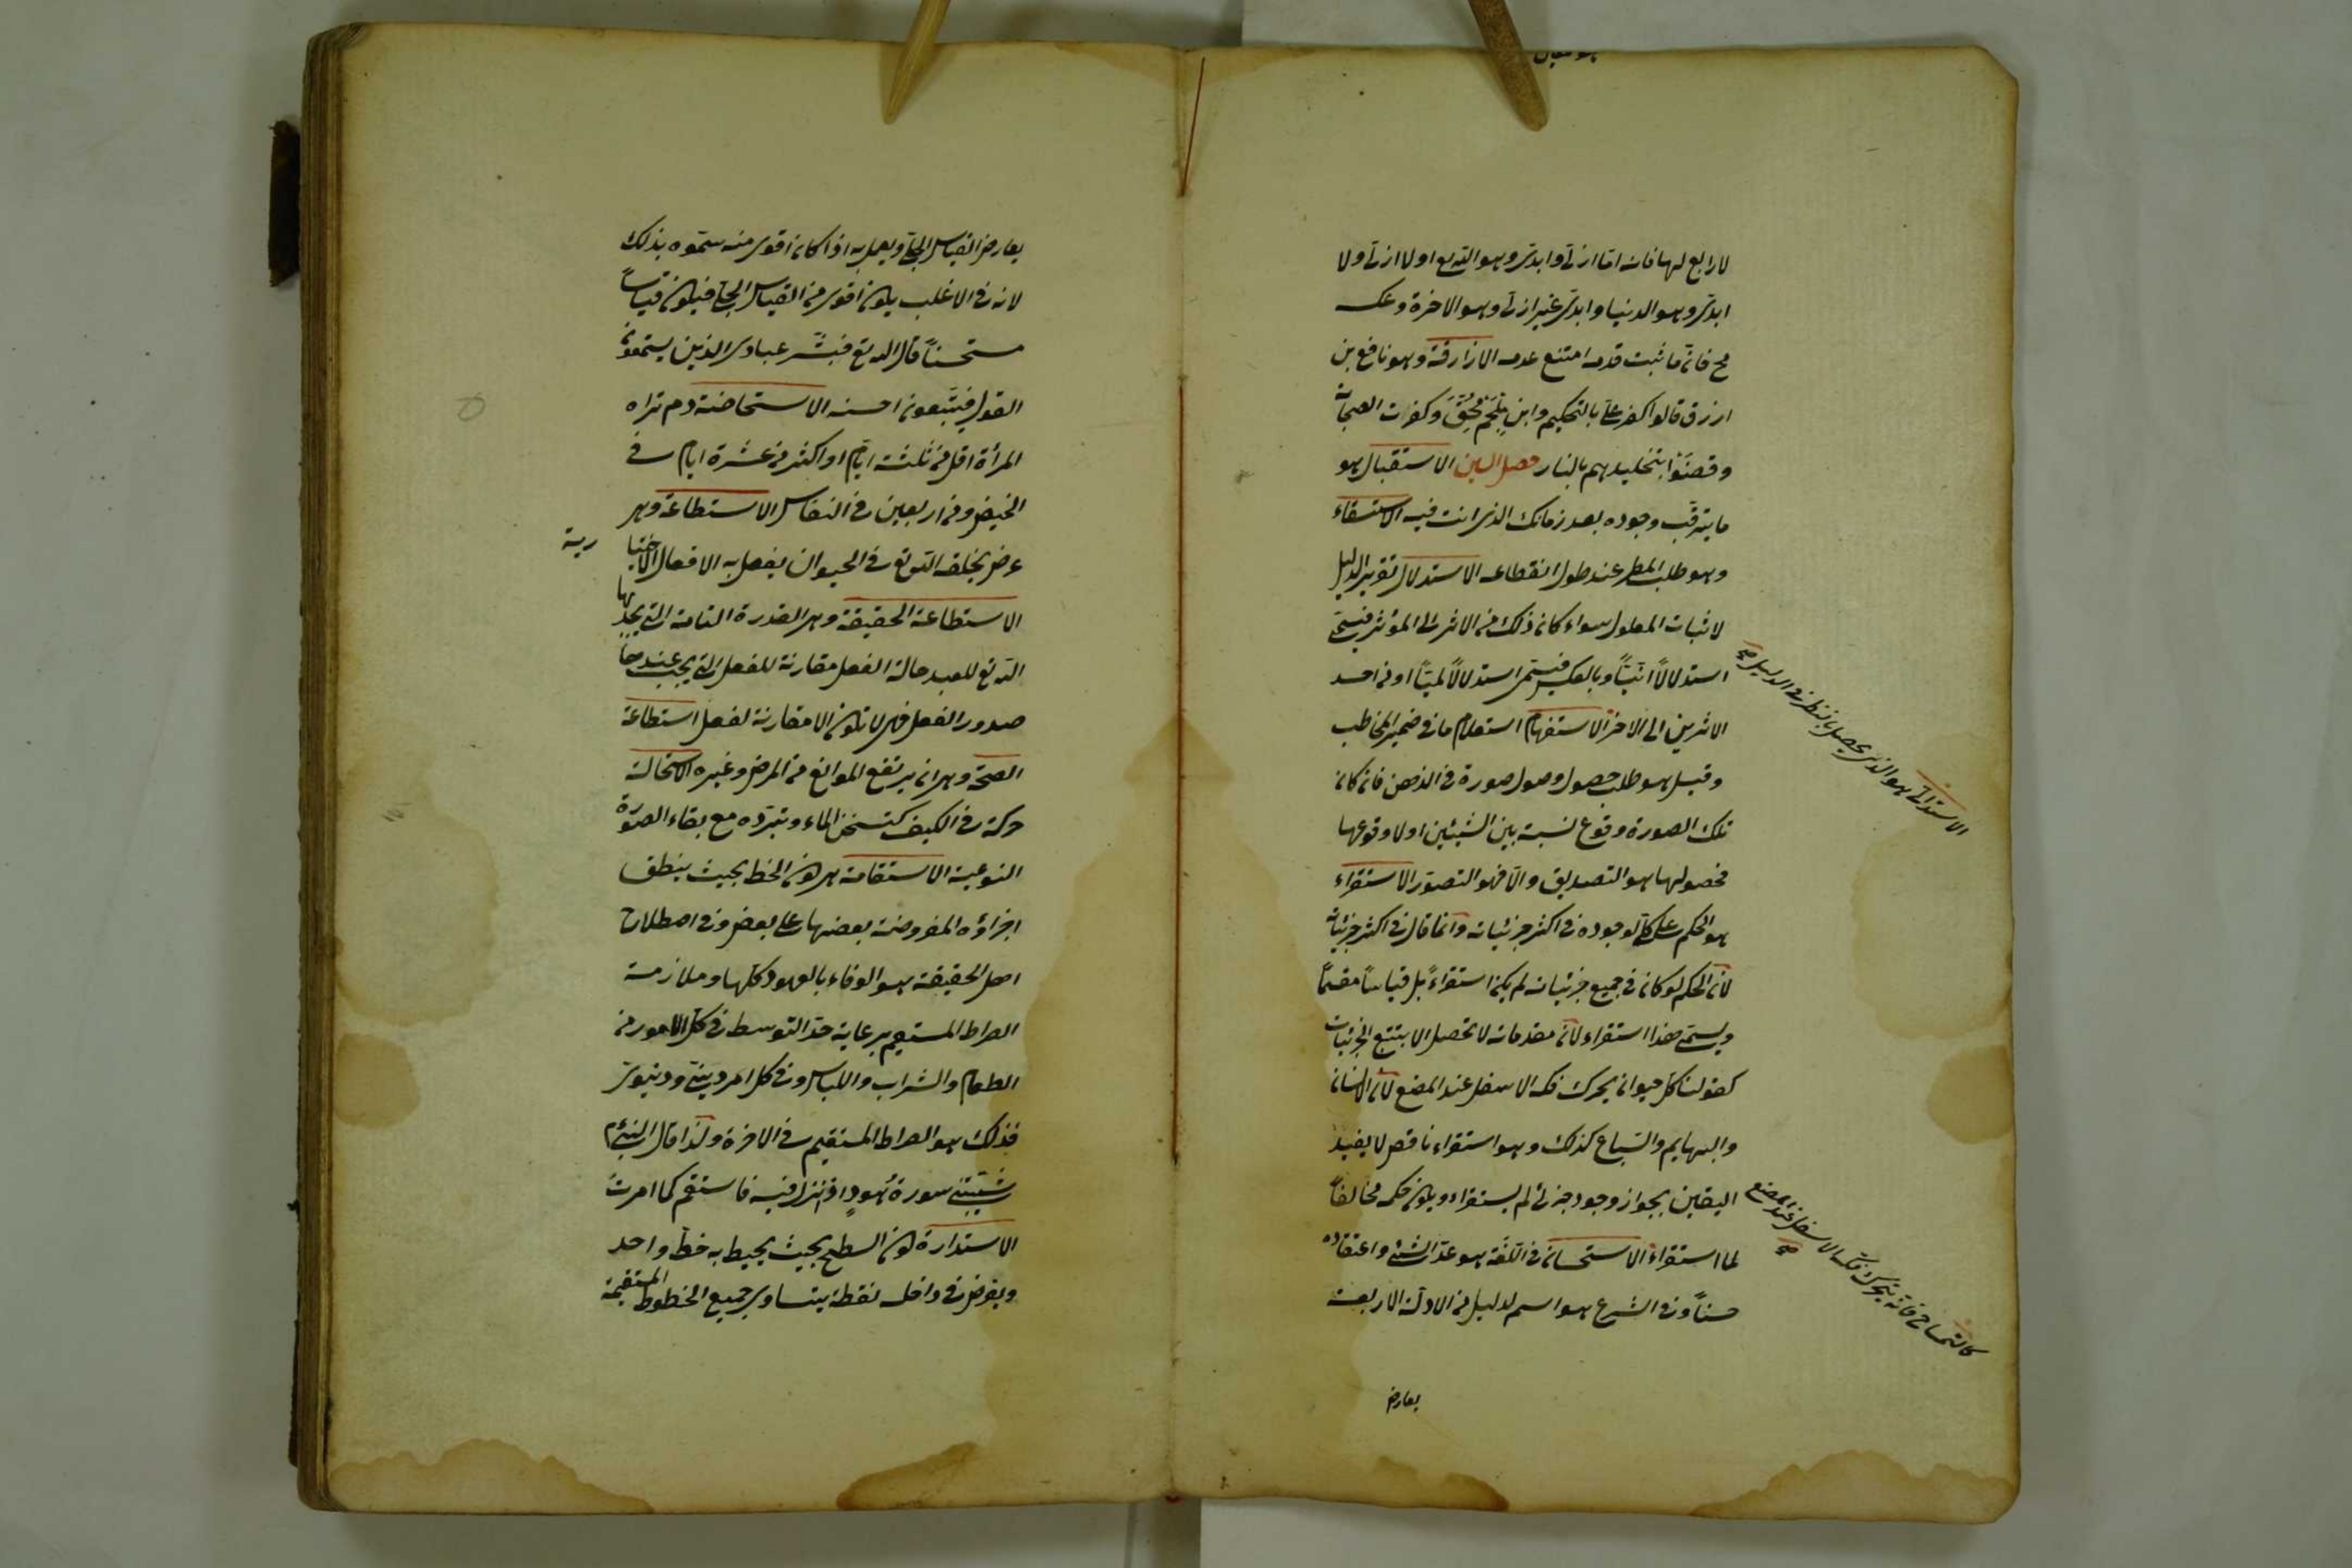 لا رابع لها فانه اما ازلى وابدى وهو الله تع او لا ازلى ولا
ابدى وهو الدنيا وابدى غير ازلى وهو الاخرة وعكسه
مح فان ما ثبت قدمه امتنع عدمه الازارقة وهو نافع بن
ازرق قالوا كفر على بالتحكيم وابن ملجم محق وكفرت الصحابة
وقضوا بتخليدهم بالنار فصل السين الاستقبال هو
ما يترقب وجوده بعد زمانك الذى انت فيه الاستسقاء
وهو طلب المطر عند طول انقطاعه الاستدلال تقرير الدليل
لاثبات المدلول سواء كان ذلك من الاثر الى المؤثر فيسمى
استدلالًا انّيًّا وبالعكس فيسمى استدلالًا لميًّا او من احد
الاثرين الى الاخر الاستفهام استعلام ما فى ضمير المخاطب
وقيل هو طلب حصول صورة فى الذهن فان كان
تلك الصورة وقوع نسبة بين الشيئين او لا وقوعها
فحصولها هو التصديق والّا فهو التصور الاستقراء
هو الحكم على كلى لوجوده فى اكثر جزئياته وانما قال فى اكثر جزئياته
لان الحكم لو كان فى جميع جزئياته لم يكن استقراءً بل قياسًا مقسمًا
ويسمى هذا استقراء لان مقدماته لا تحصل الا بتتبع الجزئيات
كقولنا كل حيوان يحرك فكه الاسفل عند المضغ لان الانسان
والبهايم والسباع كذلك وهو استقراء ناقص لا يفيد
اليقين بجواز وجود جزئى لم يستقراء ويكون حكمه مخالفًا
لما استقراء الاستحسان فى اللغة هو عدّ الشئ واعتقاده
حسنًا وفى الشرع هو اسم لدليل من الادلة الاربعة
يعارض
الاستدلالى هو الذى يحصل بالنظر فى الدليل صح
كالتمساح فانه يتحرك فكه الاسفل عند المضغ صح
يعارض القياس الجلى ويعمل به اذا كان اقوى منه سموه بذلك
لانه فى الاغلب يكون اقوى من القياس الجلى فيكون قياسًا
مستحسنًا قال الله تع فبشّر عبادى الذين يستمعون
القول فيتّبعون احسنه الاستحاضة دم تراه
المرأة اقل من ثلثة ايام او اكثر من عشرة ايام فى
الحيض ومن اربعين فى النفاس الاستطاعة وهى
عرض يخلقه الله تع فى الحيوان يفعل به الافعال الاختيا
رية
الاستطاعة الحقيقة وهى القدرة التامة التى يجب بها
الله تع للعبد حالة الفعل مقارنة للفعل التى يجب عندها
صدور الفعل فهى لا تكون الا مقارنة لفعل استطاعة
الصحة وهى ان يرتفع الموانع من المرض وغيره الاستحالة
حركة فى الكيف كتسخن الماء وتبرده مع بقاء الصورة
النوعية الاستقامة هى كون الخط بحيث ينطق
اجزاؤه المفروضة بعضها على بعض وفى اصطلاح
اهل الحقيقة هو الوفاء بالعهود كلها وملازمة
الصراط المستقيم برعاية حدّ التوسط فى كل الامور من
الطعام والشراب واللباس وفى كل امر دينى ودنيوى
فذلك هو الصراط المستقيم فى الاخرة ولذا قال النبى م
شيّبتنى سورة هودٍ اذ انزل فيه فاستقم كما امرت
الاستدارة كون السطح بحيث يحيط به خط واحد
ويفرض فى داخله نقطة يتساوى جميع الخطوط المستقيمة